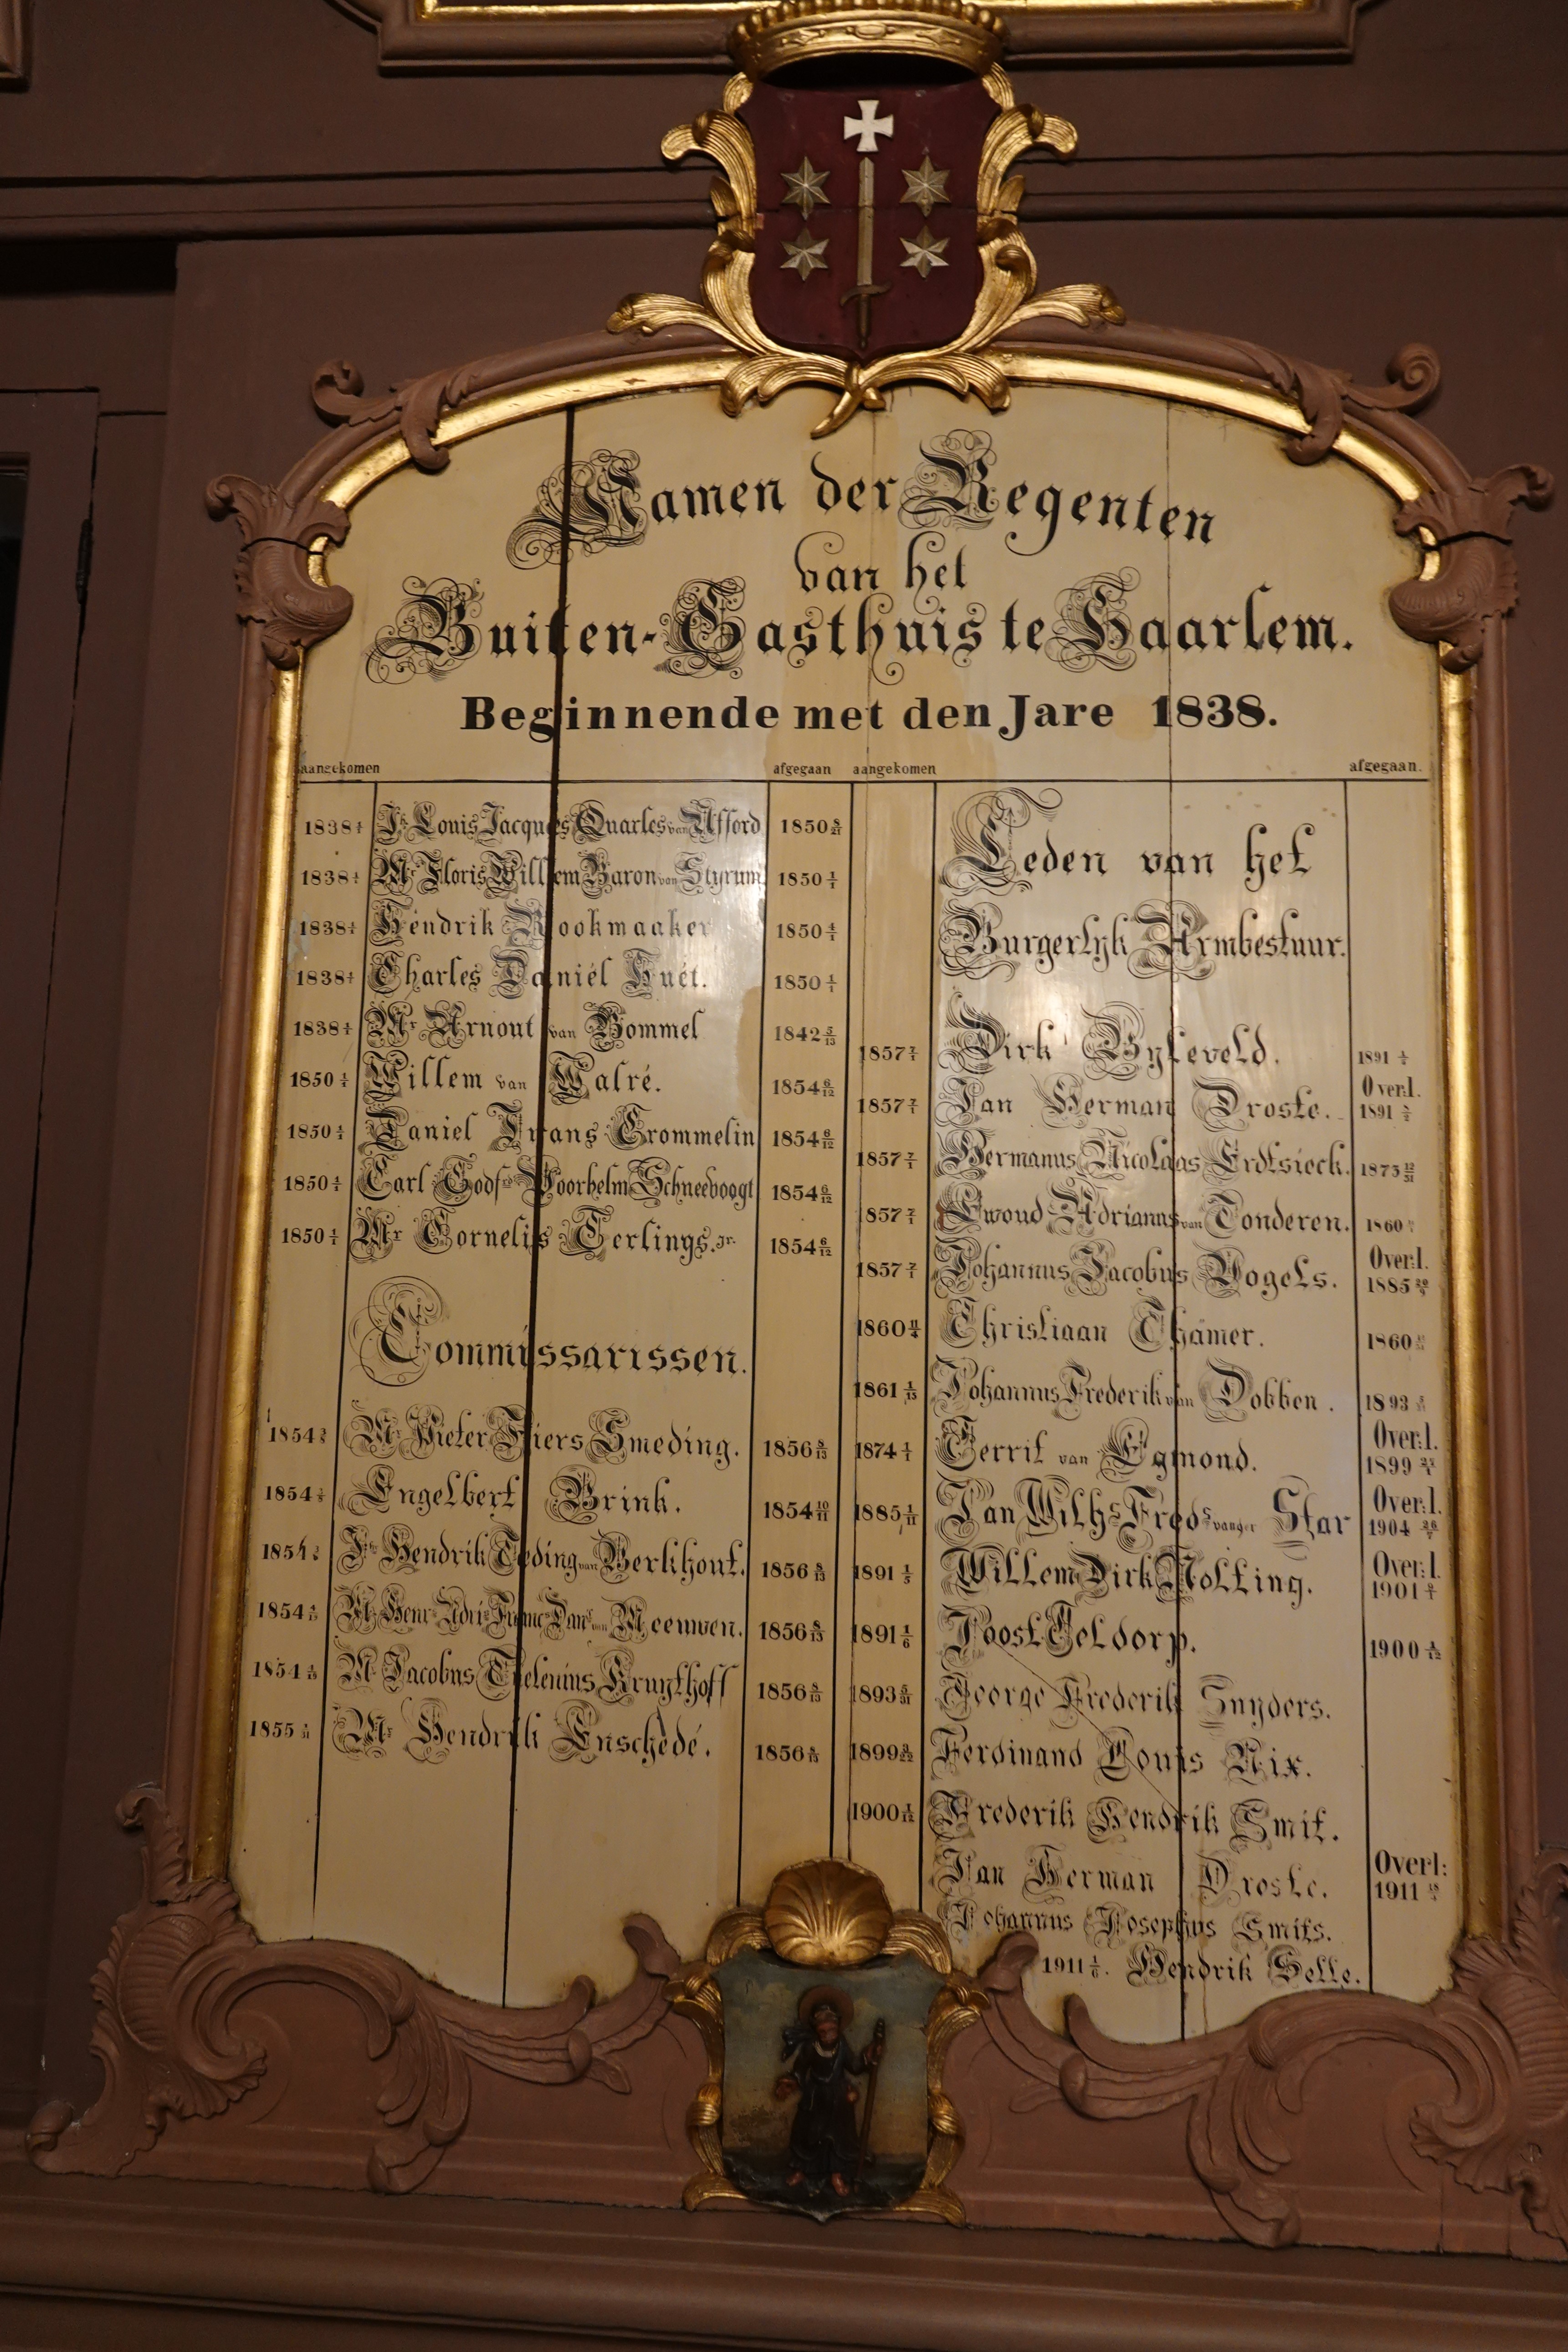 Namen der Regenten
van het
Buiten-Gasthuis te Haarlem.
Beginnende met den Jare 1838.
aangekomen afgegaan
1838 Jr. Louis Jacques Quarles van Ufford 1850 8/21
1838 Mr. Floris Willem Baron van Styrum 1850 1/1
1838 Hendrik Bookmaaker 1850 1/1
1838 Charles Daniël Huét. 1850 1/1
1838 Mr. Arnout van Bommel 1842 5/13
1850 1/1 Willem van Walré. 1854 6/12
1850 1/1 Daniel Frans Crommelin 1854 6/12
1850 1/1 Carl Godfd. Voorhelm Schneevoogt 1854 6/12
1850 1/1 Mr. Cornelis Terlings. Jr. 1854 6/12
Commissarissen.
1854 Mr. Pieter Fiers Smeding. 1856 8/13
1854 Engelbert Brink. 1854 10/11
1854 Jr. Hendrik Teding van Berkhout. 1856 8/13
1854 Mr. Henr. Adri. Franc. Dan. van Meeuwen. 1856 8/13
1854 Mr. Jacobus Thelenius Kruythoff 1856 8/13
1855 Mr. Hendrik Enschedé. 1856 8/13
aangekomen afgegaan.
Leden van het
Burgerlyk Armbestuur.
1857 7/1 Dirk Byleveld. 1891
1857 7/1 Jan Herman Droste. Overl. 1891
1857 7/1 Hermanus Nicolaas Erdtsieck. 1875 12/31
1857 7/1 Ewoud Adrianus van Tonderen. 1860
1857 7/1 Johannus Jacobus Vogels. Over:l. 1885
1860 11/4 Christiaan Thämer. 1860
1861 1/13 Johannus Frederik van Dobben. 1893
1874 1/1 Gerrit van Egmond. Over:l. 1899
1885 1/11 Jan Wilhs. Freds. van der Star Over:l. 1904
1891 1/5 Willem Dirk Nolting. Over:l. 1901
1891 1/6 Joost Geldorp. 1900
1893 George Frederik Snyders.
1899 Ferdinand Louis Nix.
1900 1/12 Frederik Hendrik Smit.
Jan Herman Droste. Overl: 1911
Johannus Josephus Smits.
1911 Hendrik Selle.